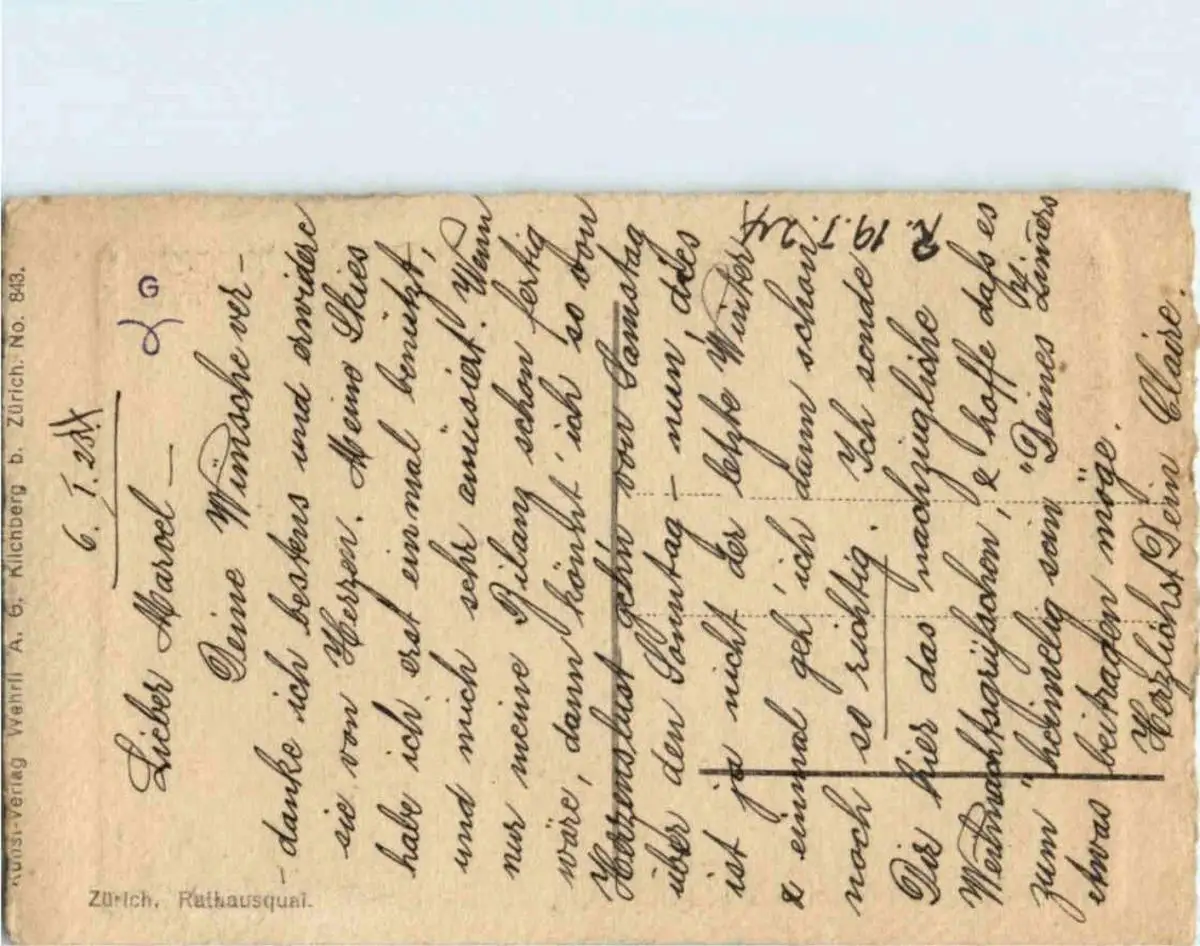 Kunst-Verlag Wehrli A. G. Kilchberg b. Zürich. No. 843.
Zürich. Rathausquai.
G
6. I. 25.
Lieber Marcel —
Deine Wünsche ver-
danke ich bestens und erwidere
sie von Herzen. Meine Skies
habe ich erst einmal benützt,
und mich sehr amüsiert. Wenn
nur meine Bilanz schon fertig
wäre, dann könnt' ich so von
Herzenslust gehn von Samstag
über den Sonntag – nun, es
ist ja nicht der letzte Winter
& einmal geh' ich dann schon
noch so richtig. Ich sende
Dir hier das nachzügliche
Weihnachtsgrüsschen, & hoffe dass es
zum "heimelig sein" Deines Zimers
etwas beitragen möge.
Herzlichst Dein Claire.
R. 19. I. 24